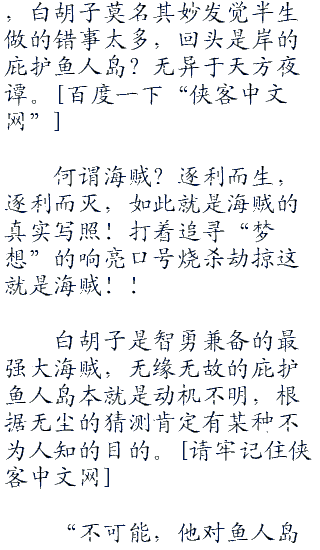 ，白胡子莫名其妙发觉半生
做的错事太多，回头是岸的
庇护鱼人岛？无异于天方夜
谭。[百度一下“侠客中文
网”]
何谓海贼？逐利而生，
逐利而灭，如此就是海贼的
真实写照！打着追寻“梦
想”的响亮口号烧杀劫掠这
就是海贼！！
白胡子是智勇兼备的最
强大海贼，无缘无故的庇护
鱼人岛本就是动机不明，根
据无尘的猜测肯定有某种不
为人知的目的。[请牢记住侠
客中文网]
“不可能，他对鱼人岛